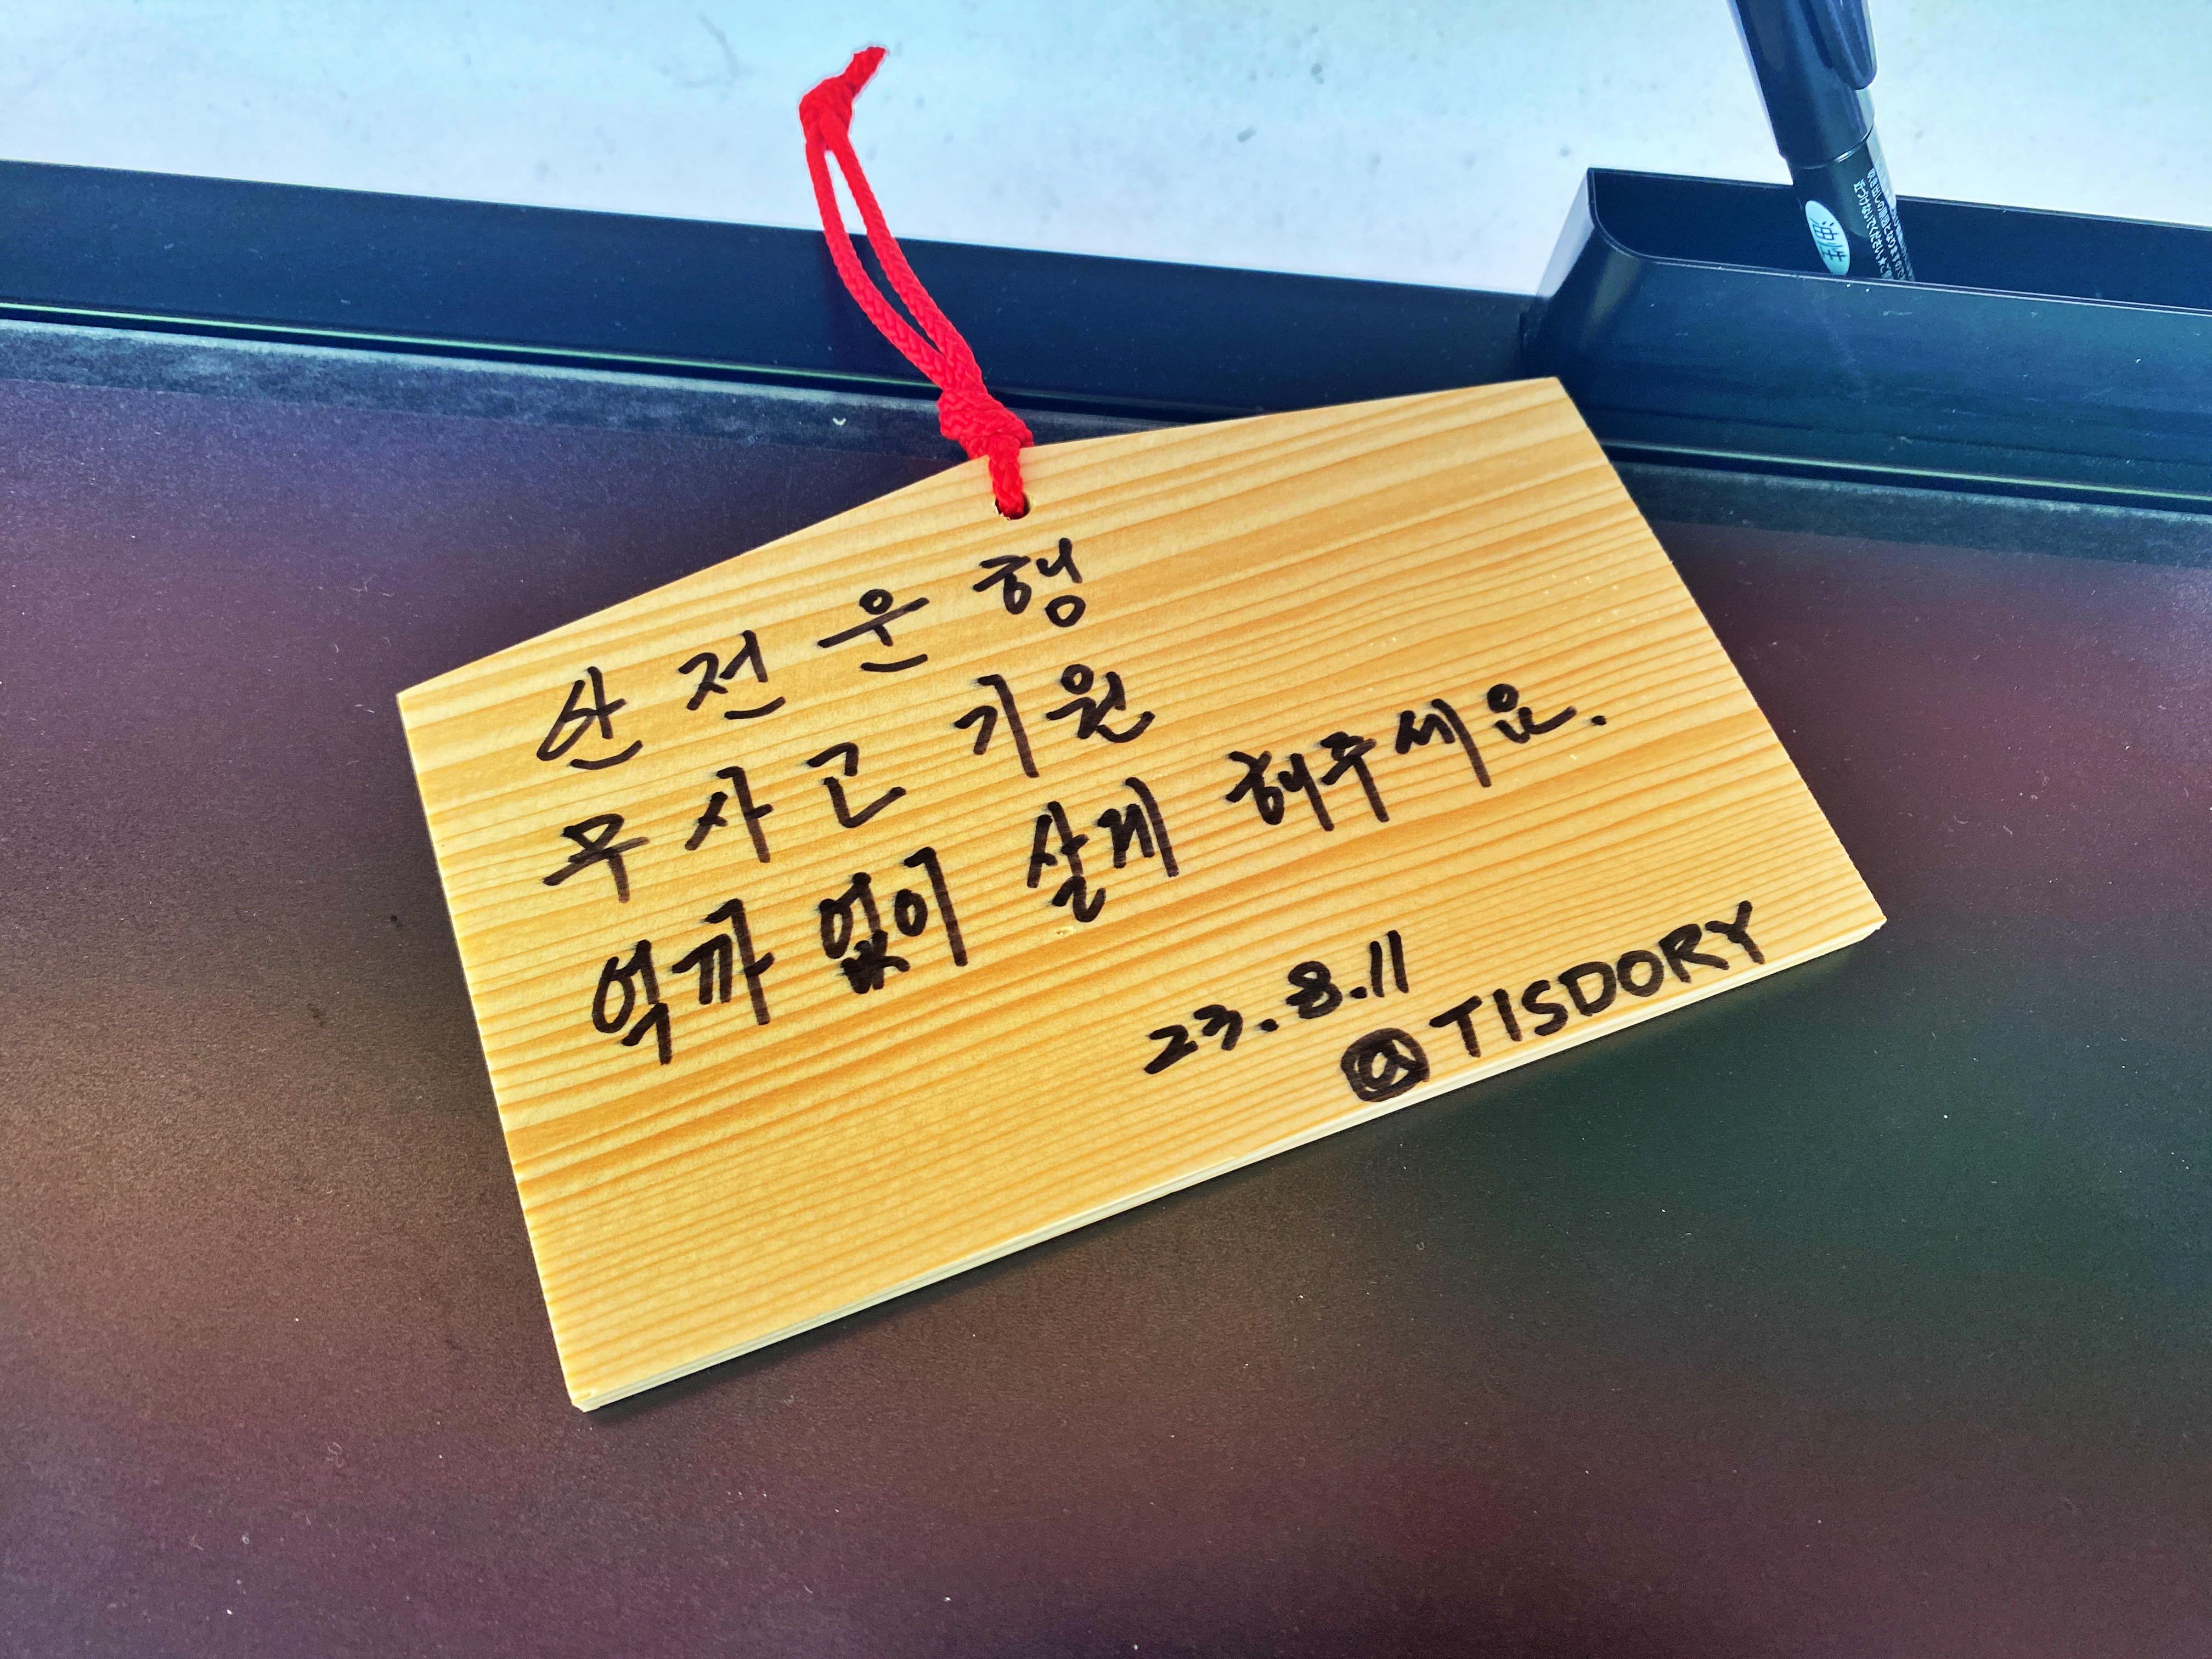 안전운행
무사고 기원
억까 없이 살게 해주세요.
23.8.11
@TISDORY